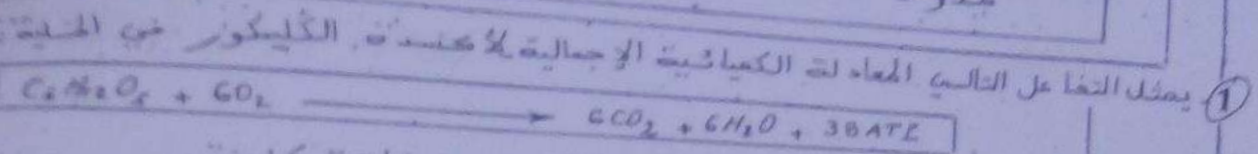 ① يمثل التفاعل التالي المعادلة الكميائية الإجمالية لأكسدة الكليكوز في الخلية:
C₆H₁₂O₆ + 6O₂ → 6CO₂ + 6H₂O + 38ATP